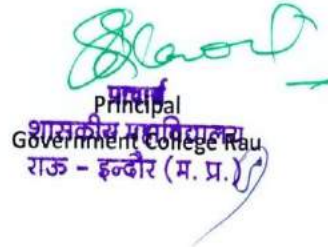 प्राचार्य
Principal
शासकीय महाविद्यालय
Government College Rau
राऊ - इन्दौर (म. प्र.)